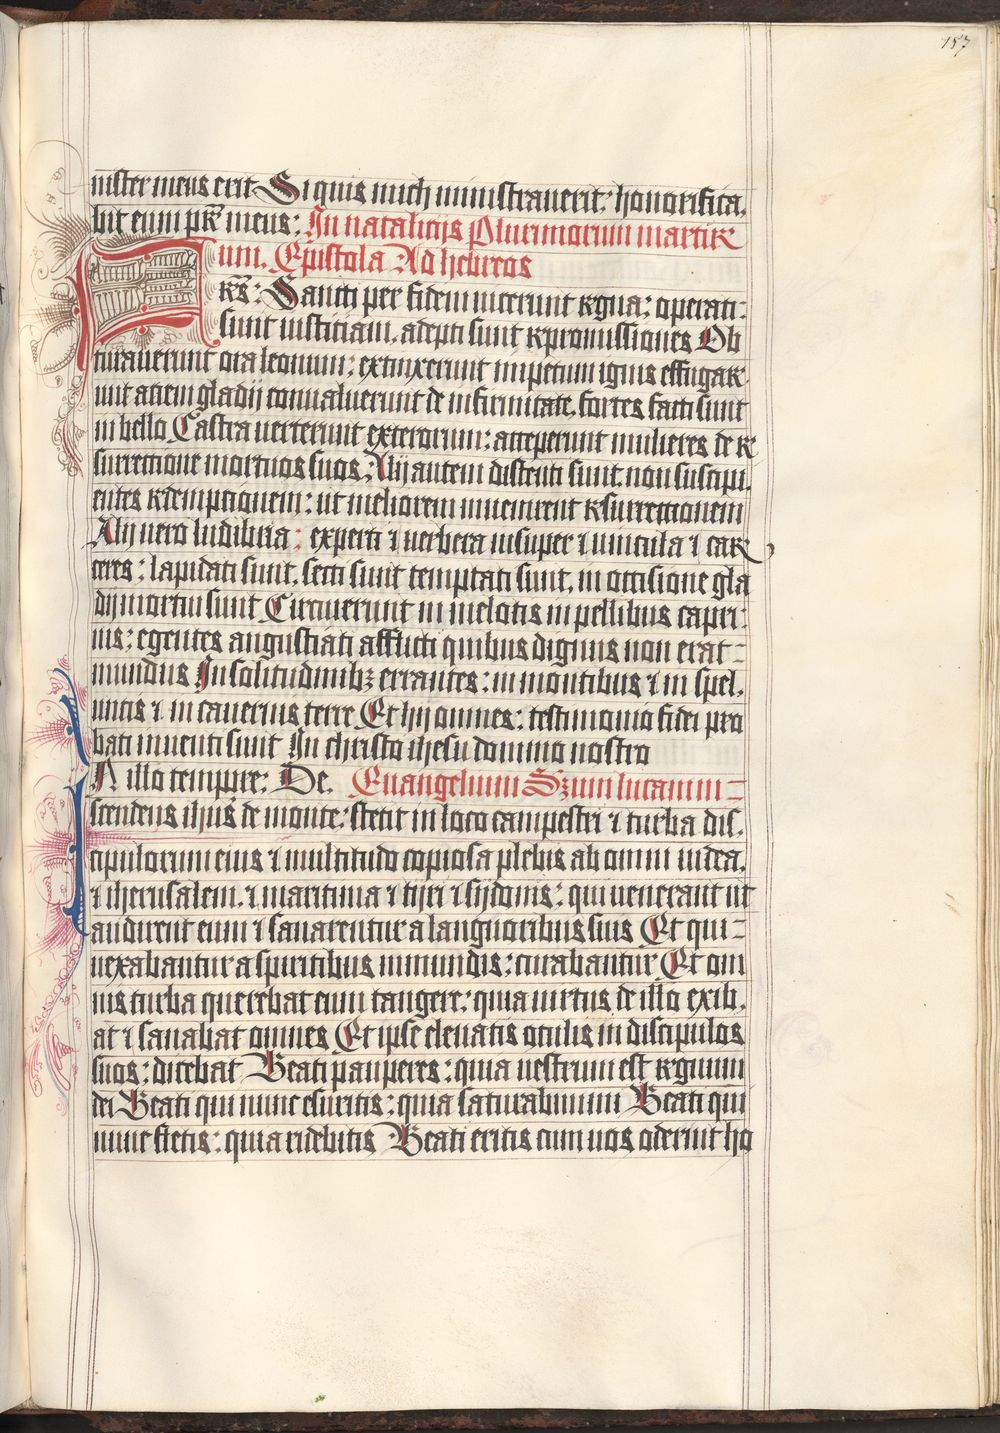 157
nister meus erit Si quis michi ministrauerit: honorifica,
bit eum pr̄ meus: In nataliciis Plurimorum martir
um. Epistola Ad hebreos
F rēs: Sancti per fidem uicerunt regna: operati:
sunt iusticiam, adepti sunt repromissiones Ob
turauerunt ora leonum: extinxerunt impetum ignis effugar
unt aciem gladij conualuerunt de infirmitate. fortes facti sunt
in bello Castra uerterunt exterorum: acceperunt mulieres de re
surrectione mortuos suos. Alij autem distenti sunt. non suscipi,
entes redemptionem: ut meliorem inuenirent resurrectionem
Alij uero ludibria: experti ⁊ uerbera insuper ⁊ uincula ⁊ car
ceres: lapidati sunt. secti sunt temptati sunt. in occisione gla
dij mortui sunt Circuierunt in melotis in pellibus capri:
nis: egentes angustiati afflicti quibus dignus non erat
mundus In solitudinibꝫ errantes: in montibus ⁊ in spel,
uncis ⁊ in cauernis terre Et hij omnes: testimonio fidei pro
bati inuenti sunt In christo ihesu domino nostro
IN illo tempore: De. Euangelium Sꝫm lucamm
scendens ihūs de monte: stetit in loco campestri ⁊ turba dis,
cipulorum eius ⁊ multitudo copiosa plebis ab omni iudea,
⁊ iherusalem. ⁊ maritima ⁊ tijri ⁊ sijdonis: qui uenerant ut
audirent eum ⁊ sanarentur a languoribus suis Et qui
uexabantur a spiritibus inmundis: curabantur Et om
nis turba querebat eum tangere: quia uirtus de illo exib,
at ⁊ sanabat omnes Et ipse eleuatis oculis in discipulos
suos: dicebat Beati pauperes: quia uestrum est regnum
dei Beati qui nunc esuritis: quia saturabimini Beati qui
nunc fletis: quia ridebitis Beati eritis cum uos oderint ho